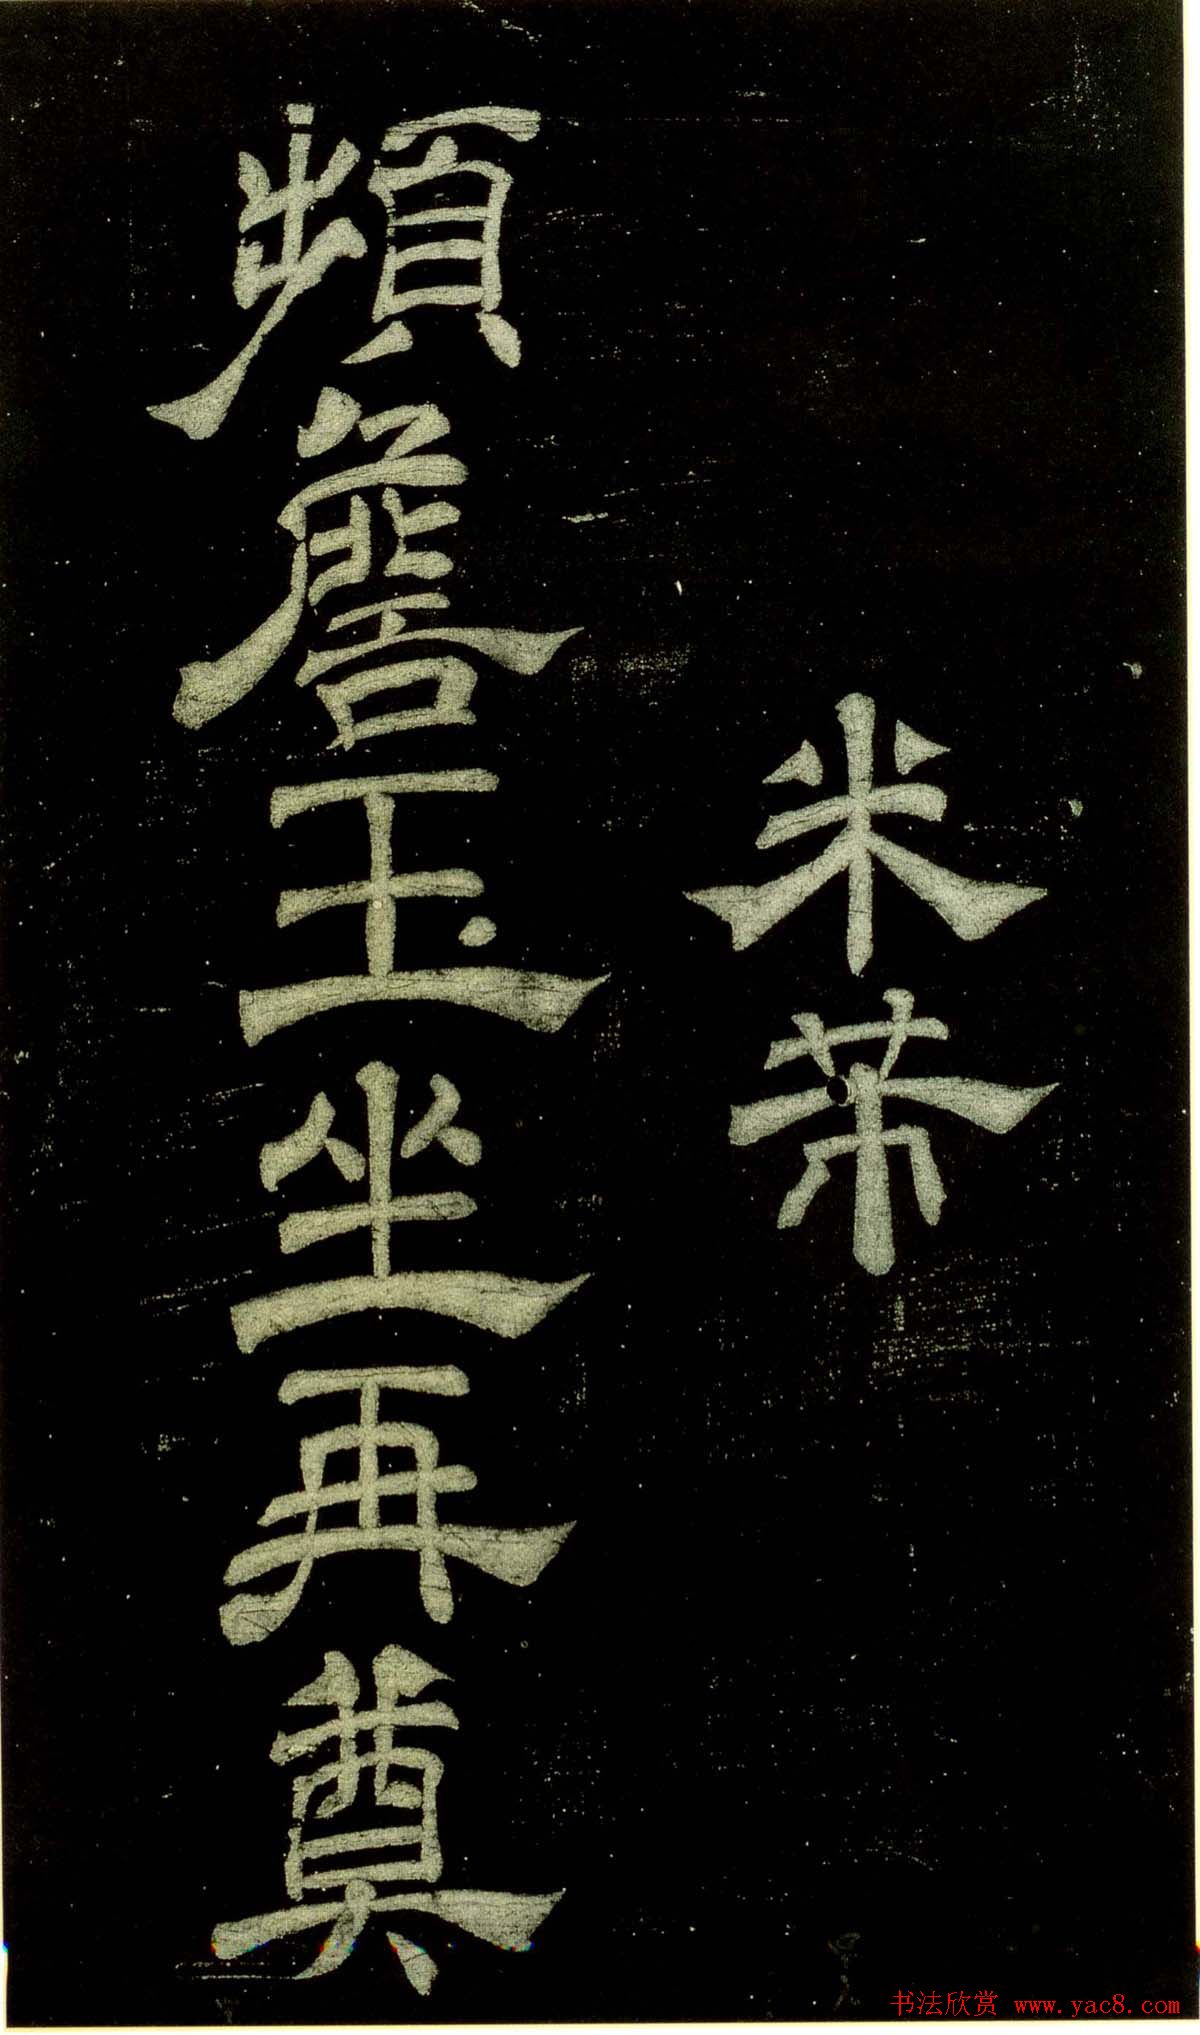 米芾
頻詹玉坐再奠
书法欣赏 www.yac8.com